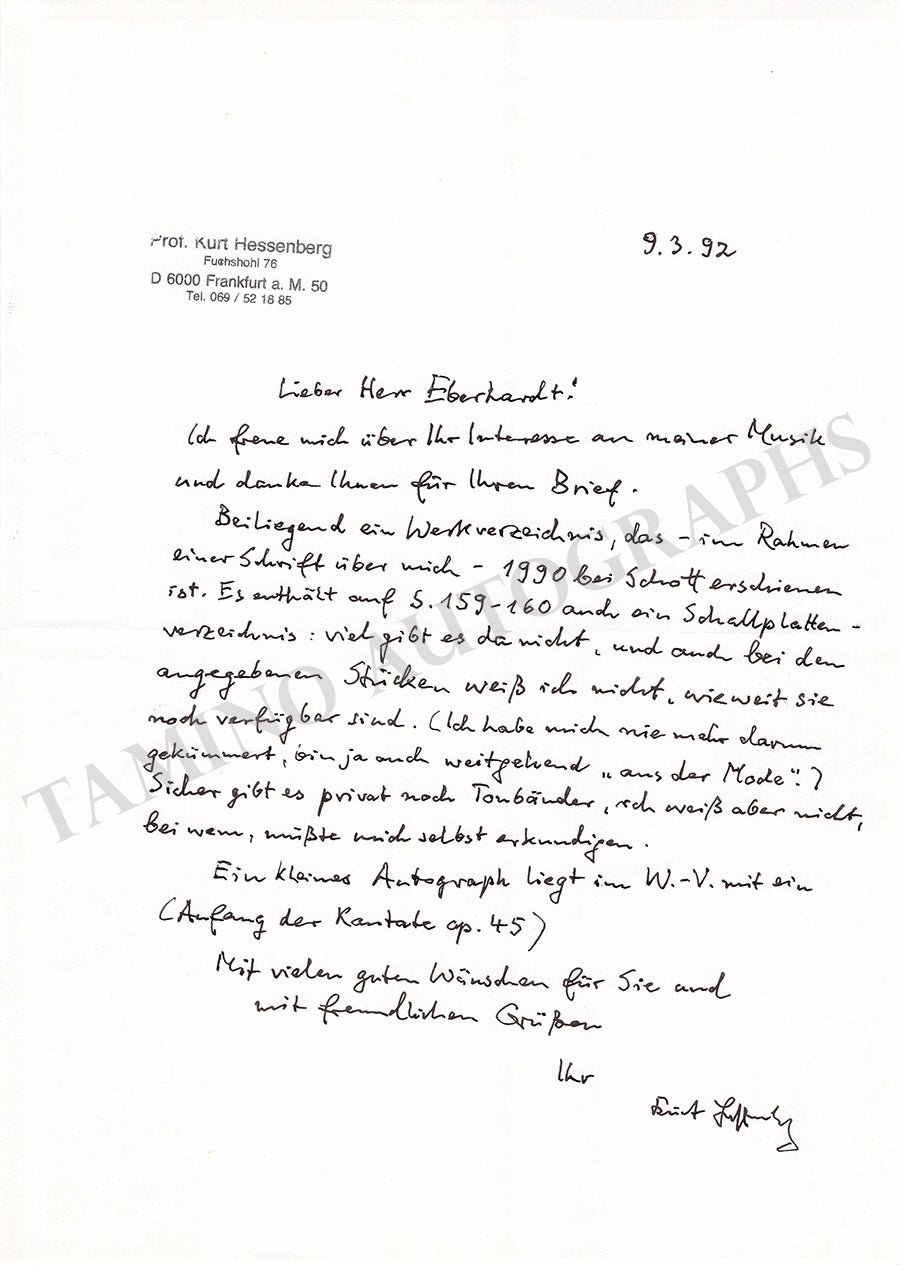 Prof. Kurt Hessenberg
Fuchshohl 76
D 6000 Frankfurt a. M. 50
Tel. 069 / 52 18 85
9.3.92
Lieber Herr Eberhardt!
Ich freue mich über Ihr Interesse an meiner Musik
und danke Ihnen für Ihren Brief.
Beiliegend ein Werkverzeichnis, das – im Rahmen
einer Schrift über mich – 1990 bei Schott erschienen
ist. Es enthält auf S. 159-160 auch ein Schallplatten-
verzeichnis: viel gibt es da nicht, und auch bei den
angegebenen Stücken weiß ich nicht, wieweit sie
noch verfügbar sind. (Ich habe mich nie mehr darum
gekümmert, bin ja auch weitgehend „aus der Mode“!)
Sicher gibt es privat noch Tonbänder, ich weiß aber nicht,
bei wem, müßte mich selbst erkundigen.
Ein kleines Autograph liegt im W.-V. mit ein
(Anfang der Kantate op. 45)
Mit vielen guten Wünschen für Sie und
mit freundlichen Grüßen
Ihr
Kurt Hessenberg
TAMINO AUTOGRAPHS